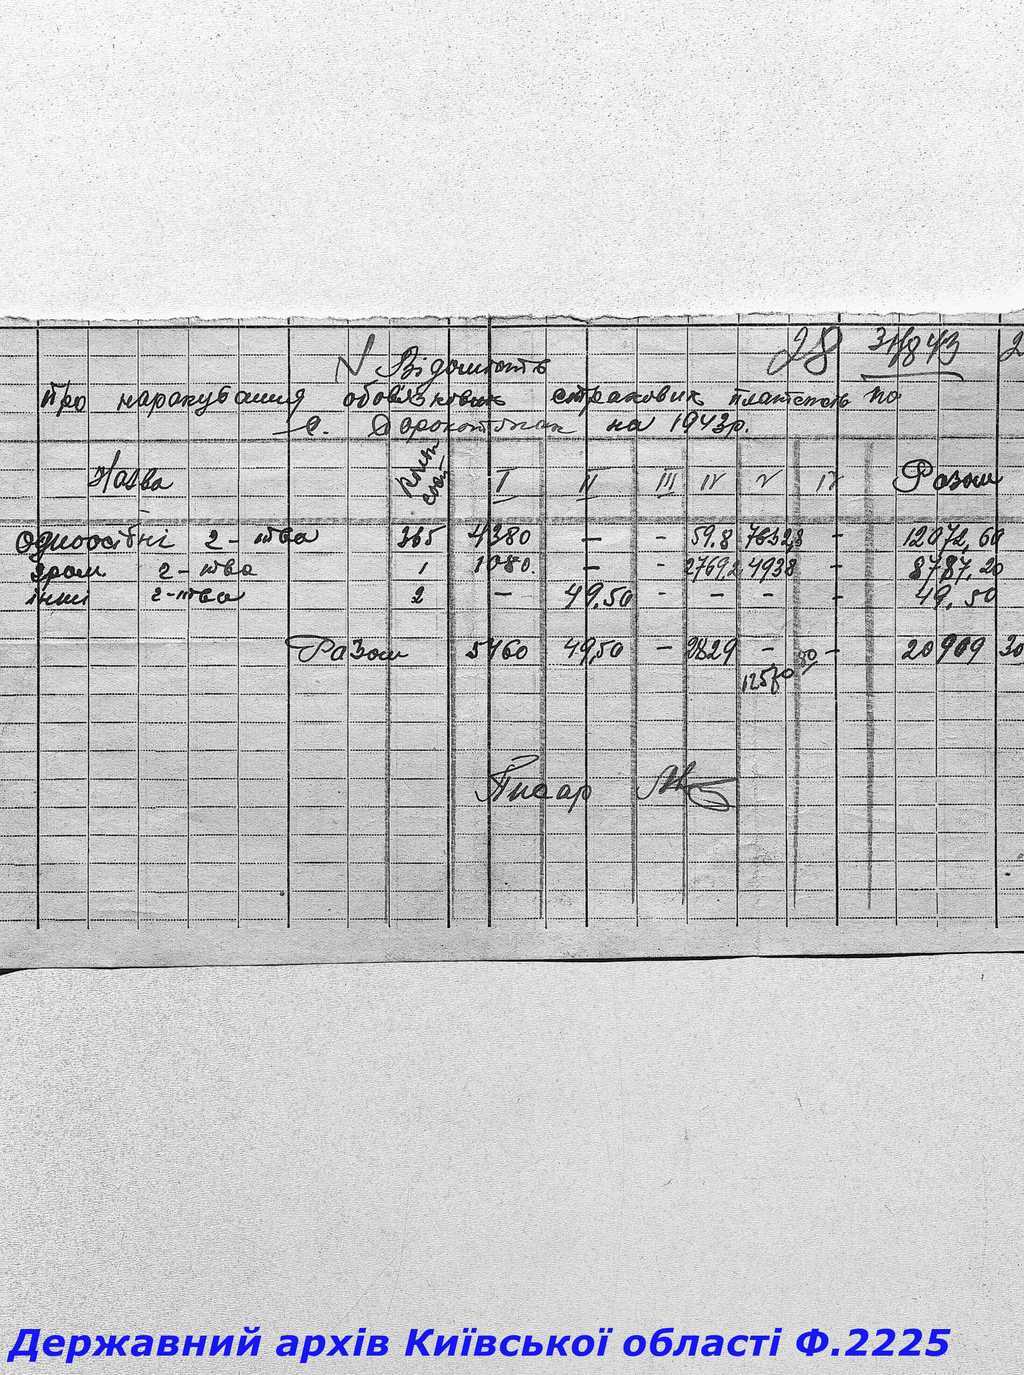 28 31/8 43 2
Відомість
про нарахування обов'язкових страхових платежів по
с. на 1943 р.
Назва I II III IV V IV Разом
одноосібні г-тва 365 4380 — - 59.8 7632,8 - 12072,60
гром г-тва 1 1080. — - 2769,2 4938 - 8787.20
інші г-тва 2 — 49.50 - - - - 49.50
Разом 5460 49,50 — 2829 - - 20909 30
Писар
Державний архів Київської області Ф.2225